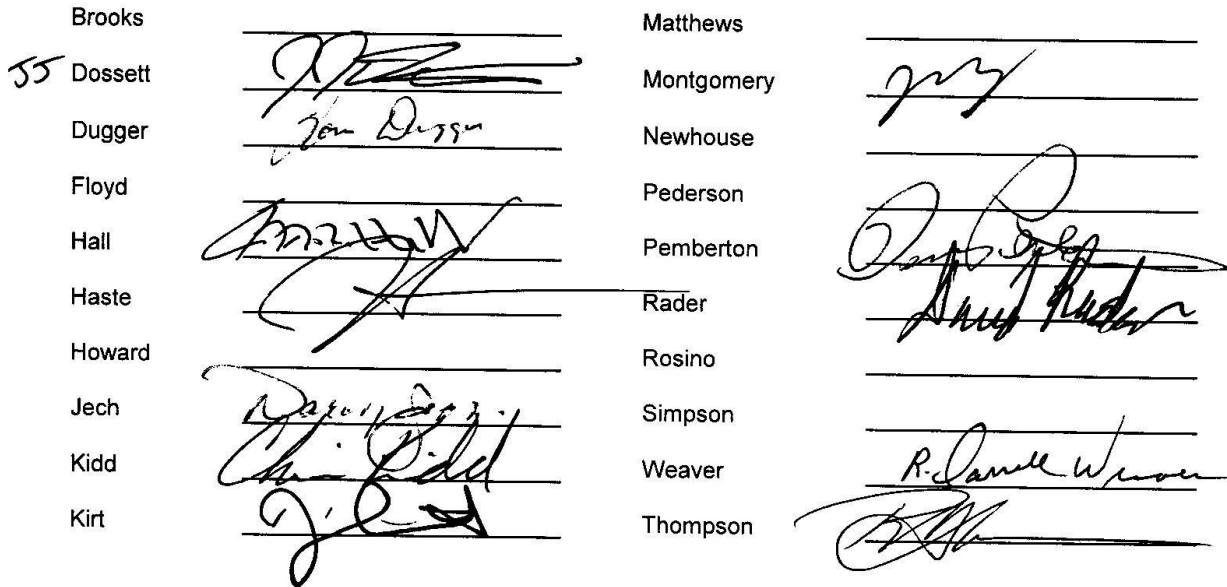 Brooks
JJ Dossett
Dugger Tom Dugger
Floyd
Hall
Haste
Howard
Jech
Kidd Chris Kidd
Kirt
Matthews
Montgomery
Newhouse
Pederson
Pemberton
Rader David Rader
Rosino
Simpson
Weaver R. Darrell Weaver
Thompson